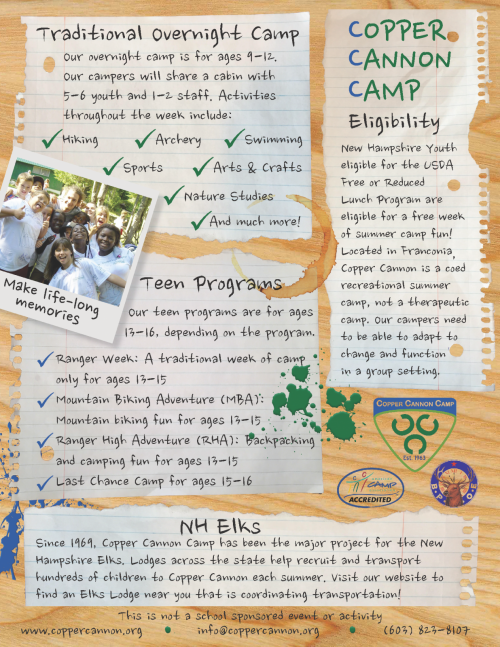 Traditional Overnight Camp
Our overnight camp is for ages 9-12.
Our campers will share a cabin with
5-6 youth and 1-2 staff. Activities
throughout the week include:
Hiking
Archery
Swimming
Sports
Arts & Crafts
Nature Studies
And much more!
Make life-long
memories
Teen Programs
Our teen programs are for ages
13-16, depending on the program.
Ranger Week: A traditional week of camp
only for ages 13-15
Mountain Biking Adventure (MBA):
Mountain biking fun for ages 13-15
Ranger High Adventure (RHA): Backpacking
and camping fun for ages 13-15
Last Chance Camp for ages 15-16
COPPER
CANNON
CAMP
Eligibility
New Hampshire Youth
eligible for the USDA
Free or Reduced
Lunch Program are
eligible for a free week
of summer camp fun!
Located in Franconia,
Copper Cannon is a coed
recreational summer
camp, not a therapeutic
camp. Our campers need
to be able to adapt to
change and function
in a group setting.
COPPER CANNON CAMP
Est. 1963
CAMP
ACCREDITED
B.P.O.E
NH Elks
Since 1969, Copper Cannon Camp has been the major project for the New
Hampshire Elks. Lodges across the state help recruit and transport
hundreds of children to Copper Cannon each summer. Visit our website to
find an Elks Lodge near you that is coordinating transportation!
This is not a school sponsored event or activity
www.coppercannon.org • info@coppercannon.org • (603) 823-8107